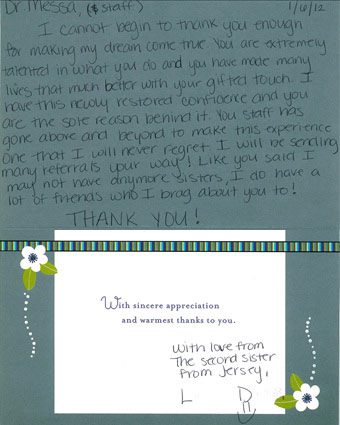 Dr. Messa, (& staff) 1/6/12
I cannot begin to thank you enough
for making my dream come true. You are extremely
talented in what you do and you have made many
lives that much better with your gifted touch. I
have this newly restored confidence and you
are the sole reason behind it. You staff has
gone above and beyond to make this experience
one that I will never regret. I will be sending
many referrals your way! Like you said I
may not have anymore sisters, I do have a
lot of friends who I brag about you to!
THANK YOU!
With sincere appreciation
and warmest thanks to you.
With love from
The second sister
From Jersey,
L D